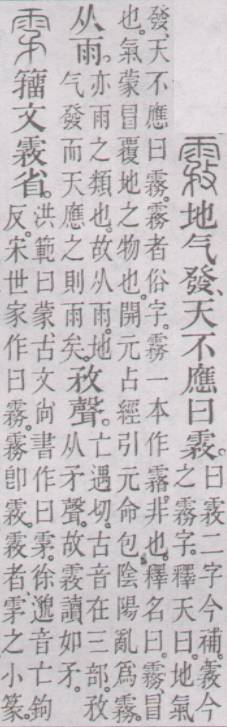 霚地气發、天不應曰霚。
曰霚二字今補。霚今
之霧字。釋天曰。地氣
發、天不應曰霧。霧者俗字。霧一本作霿。非也。釋名曰。霧、冒
也。氣蒙冒覆地之物也。開元占經引元命包。陰陽亂爲霧。
从雨。
亦雨之類也。故从雨。地
气發而天應之則雨矣。
敄聲。
亡遇切。古音在三部。敄
从矛聲。故霚讀如矛。
雺籒文霚省。
洪範曰蒙。古文尙書作曰雺。徐邈音亡鉤
反。宋世家作曰霧。霧卽霚。霚者、雺之小篆。